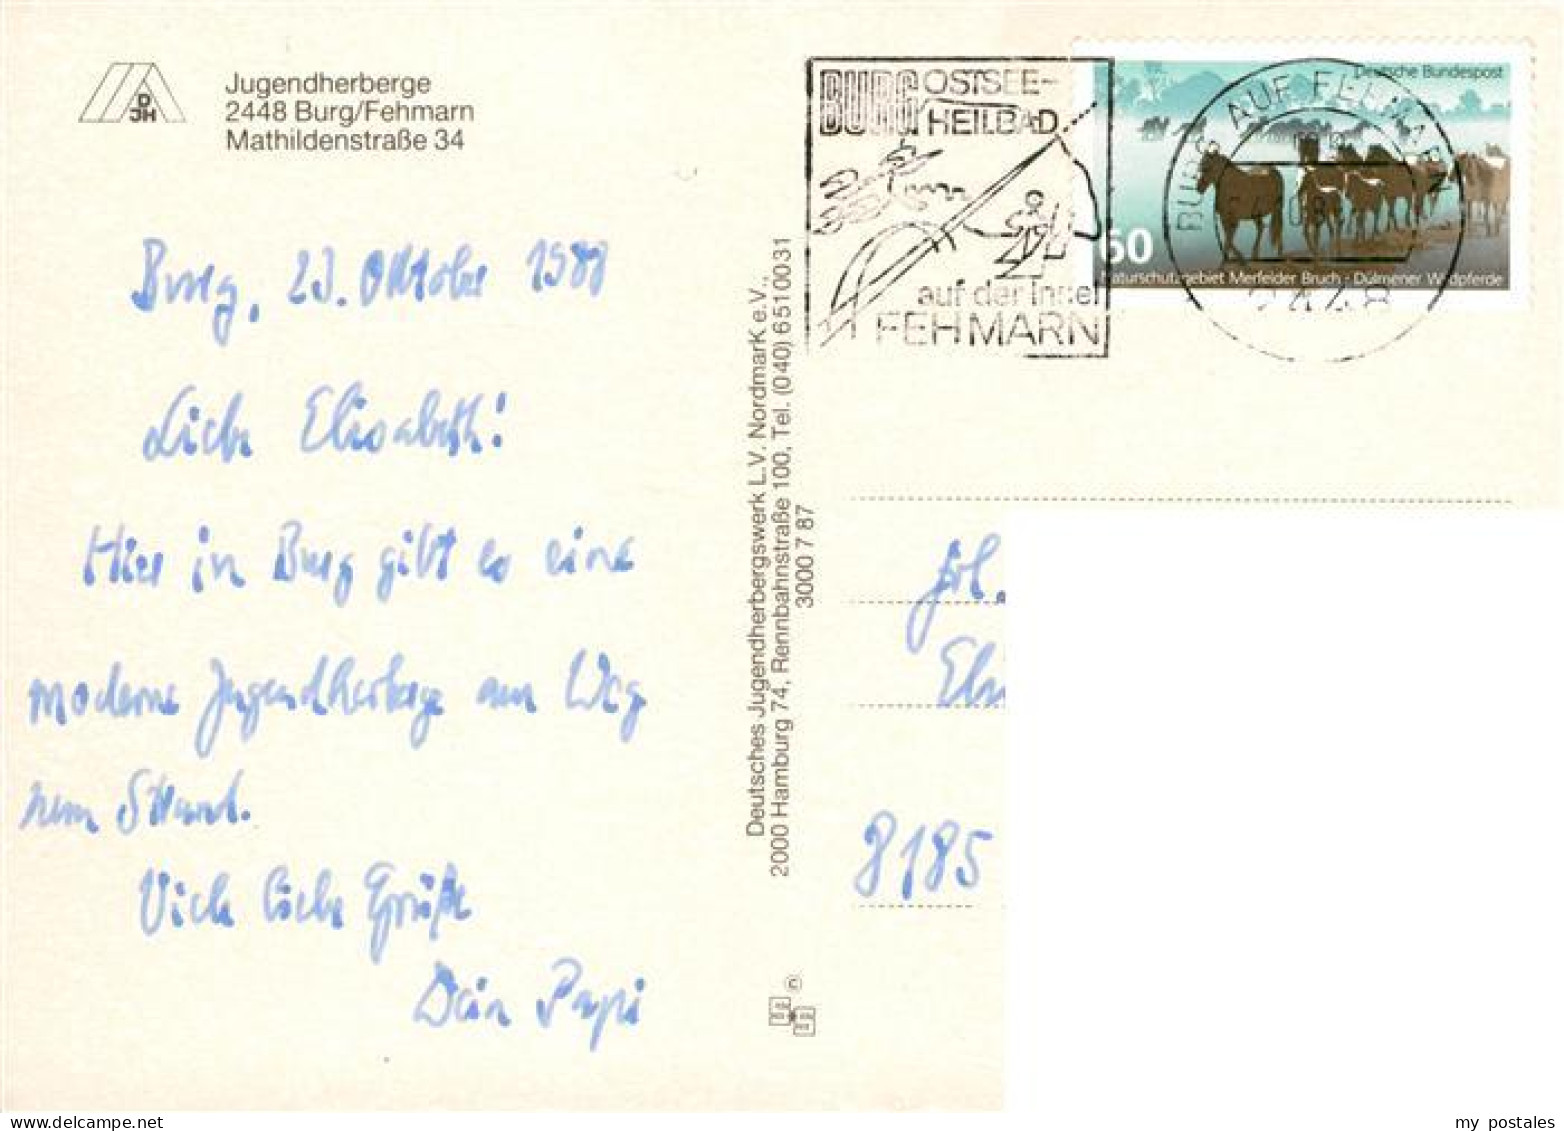 DJH
Jugendherberge
2448 Burg/Fehmarn
Mathildenstraße 34
Burg, 23. Oktober 1988
Liebe Elisabeth!
Hier in Burg gibt es eine
moderne Jugendherberge am Weg
zum Strand.
Viele liebe Grüße
Dein Papi
Deutsches Jugendherbergswerk L.V. Nordmark e.V.,
2000 Hamburg 74, Rennbahnstraße 100, Tel. (040) 6510031
3000 7 87
©
BURG OSTSEE-
HEILBAD
auf der Insel
FEHMARN
Deutsche Bundespost
60
Naturschutzgebiet Merfelder Bruch - Dülmener Wildpferde
BURG AUF FEHMARN
2448
Frl.
8185
my postales